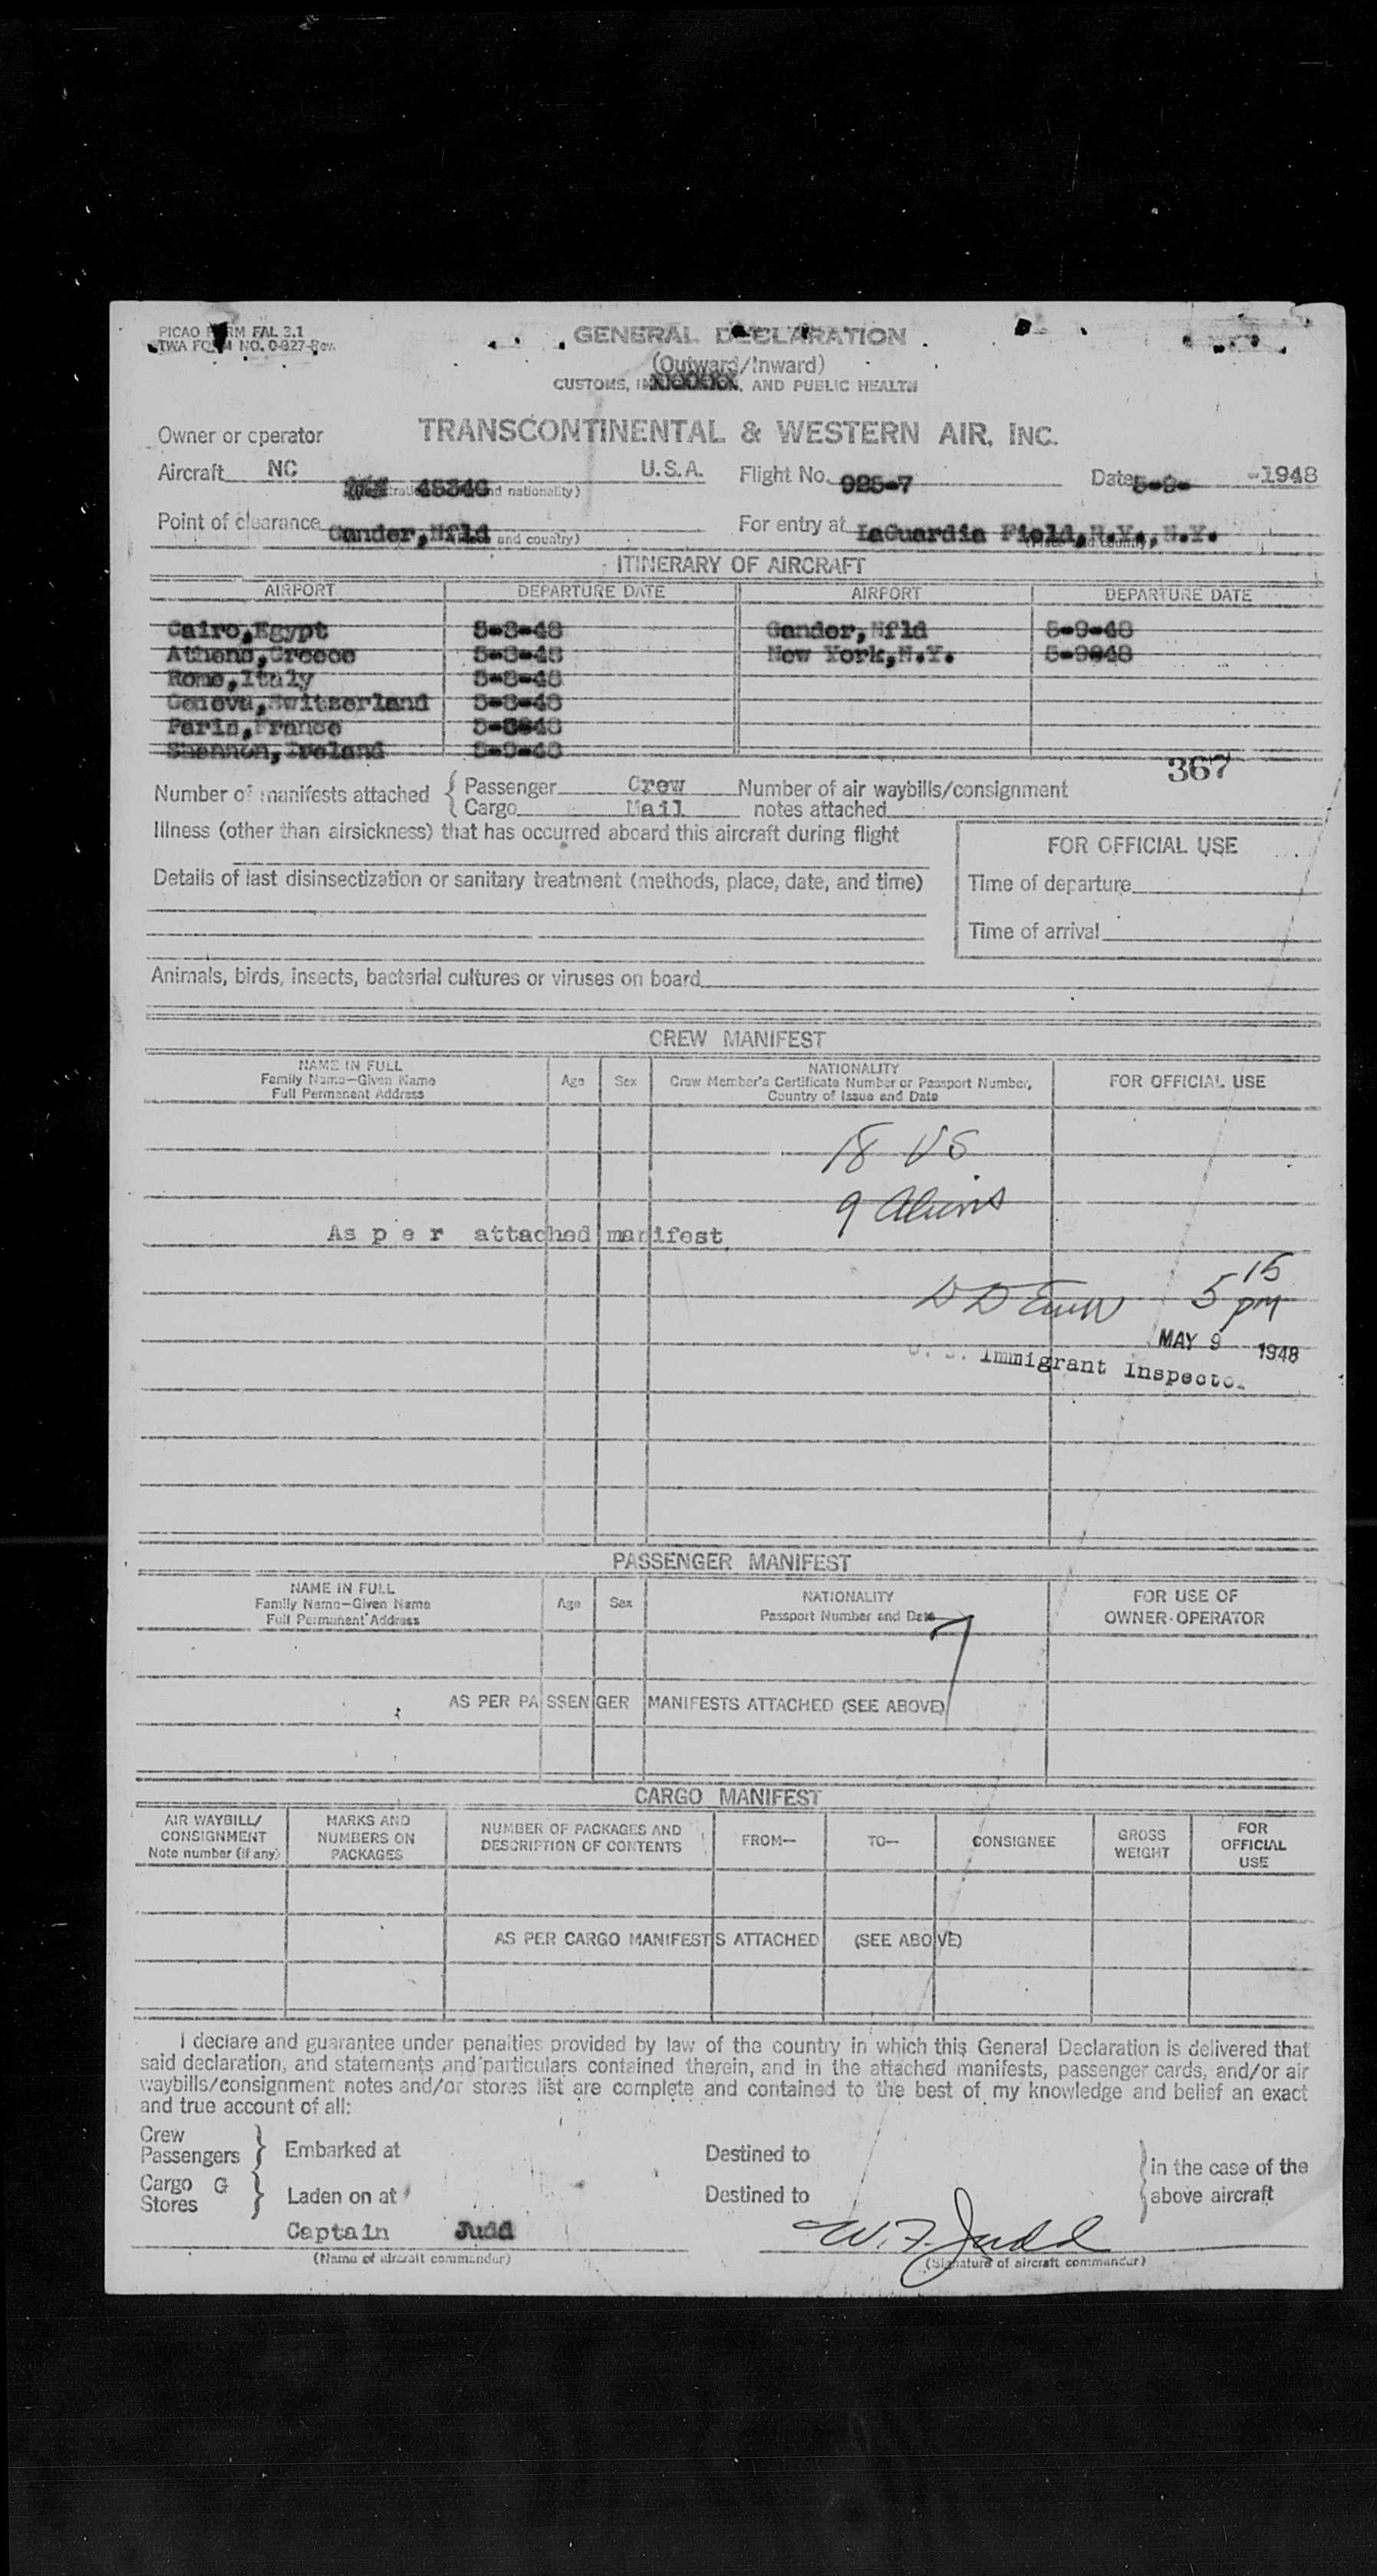 PICAO FORM FAL 3.1
TWA FORM NO. 0-827-Rev.
GENERAL DECLARATION
(Outward/Inward)
CUSTOMS, , AND PUBLIC HEALTH
Owner or operator TRANSCONTINENTAL & WESTERN AIR, INC.
Aircraft NC U.S.A. Flight No. 925-7 Date 5-9- -1948
and nationality)
Point of clearance Gander,Nfld For entry at LaGuardia Field,N.Y., N.Y.
and country)
ITINERARY OF AIRCRAFT
AIRPORT DEPARTURE DATE AIRPORT DEPARTURE DATE
Cairo,Egypt 5-8-48 Gander,Nfld 5-9-48
Athens,Greece 5-8-48 New York,N.Y. 5-9048
Rome,Italy 5-8-48
Geneva,Switzerland 5-8-48
Paris,France 5-8048
Shannon,Ireland 5-9-48
367
Number of manifests attached { Passenger Crew Number of air waybills/consignment
Cargo Mail notes attached
Illness (other than airsickness) that has occurred aboard this aircraft during flight
FOR OFFICIAL USE
Details of last disinsectization or sanitary treatment (methods, place, date, and time)
Time of departure
Time of arrival
Animals, birds, insects, bacterial cultures or viruses on board
CREW MANIFEST
NAME IN FULL
Family Name—Given Name
Full Permanent Address
Age Sex
NATIONALITY
Crew Member's Certificate Number or Passport Number,
Country of Issue and Date
FOR OFFICIAL USE
18 US
9 Aliens
As p e r attached manifest
D D 5 15 pm
MAY 9 1948
U. S. Immigrant Inspector
PASSENGER MANIFEST
NAME IN FULL
Family Name—Given Name
Full Permanent Address
Age Sex
NATIONALITY
Passport Number and Date
FOR USE OF
OWNER-OPERATOR
AS PER PASSENGER MANIFESTS ATTACHED (SEE ABOVE)
CARGO MANIFEST
AIR WAYBILL/
CONSIGNMENT
Note number (if any)
MARKS AND
NUMBERS ON
PACKAGES
NUMBER OF PACKAGES AND
DESCRIPTION OF CONTENTS
FROM—
TO—
CONSIGNEE
GROSS
WEIGHT
FOR
OFFICIAL
USE
AS PER CARGO MANIFESTS ATTACHED (SEE ABOVE)
I declare and guarantee under penalties provided by law of the country in which this General Declaration is delivered that
said declaration, and statements and particulars contained therein, and in the attached manifests, passenger cards, and/or air
waybills/consignment notes and/or stores list are complete and contained to the best of my knowledge and belief an exact
and true account of all:
Crew
Passengers } Embarked at Destined to
Cargo G
Stores } Laden on at Destined to
} in the case of the
above aircraft
Captain Judd W.F. Judd
(Name of aircraft commander) (Signature of aircraft commander)